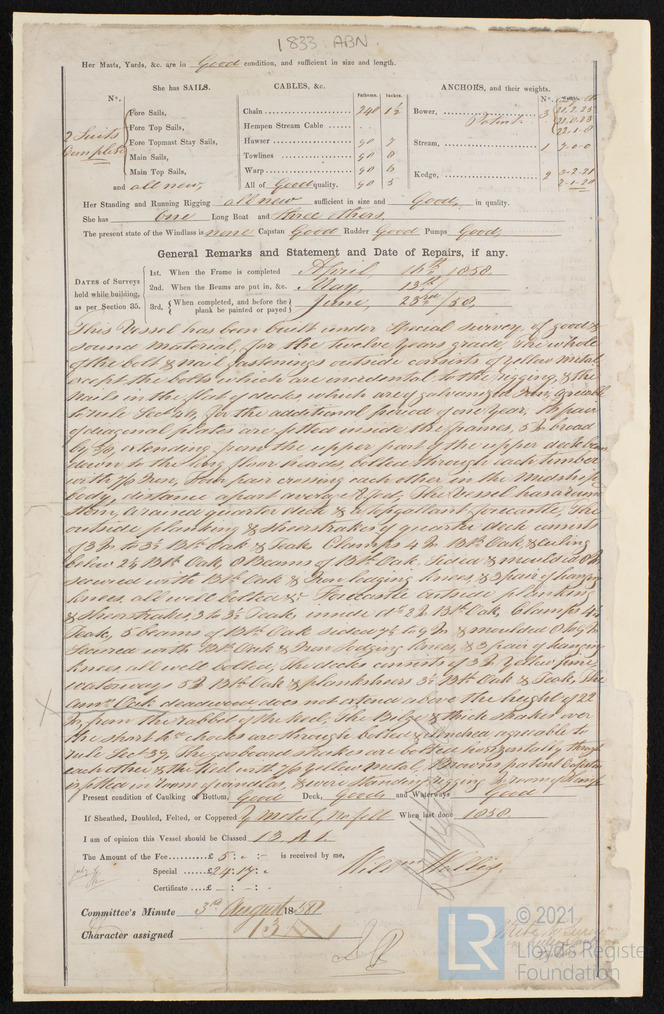 1833 ABN.
Her Masts, Yards, &c. are in Good condition, and sufficient in size and length.
She has SAILS. CABLES, &c. ANCHORS, and their weights.
N°. Fathoms. Inches. N°.
Fore Sails, Chain 240 1½ Bower, 3 21.2.23
2 Suits Fore Top Sails, Hempen Stream Cable Patent 21.0.23
Complete Fore Topmast Stay Sails, Hawser 90 7 22.1.0
Main Sails, Towlines 90 8 Stream, 1 7.0.0
Main Top Sails, Warp 90 6 Kedge, 2 3.2.21
and all new, All of Good quality. 90 5 2.1.20
Her Standing and Running Rigging all new sufficient in size and Good, in quality.
She has One Long Boat and three others.
The present state of the Windlass is none Capstan Good Rudder Good Pumps Good
General Remarks and Statement and Date of Repairs, if any.
DATES of Surveys held while building, as per Section 35.
1st. When the Frame is completed April 16th 1858.
2nd. When the Beams are put in, &c. May, 13th
3rd, When completed, and before the plank be painted or payed June, 23rd /58.
This Vessel has been built under Special survey, of good &
sound material, for the twelve years grade, The whole
of the bolt & nail fastenings outside consists of yellow metal
except the bolts which are incidental to the rigging, & the
nails in the flat of decks, which are galvanized Iron, agreeable
to rule Sect for the additional period of one year, pair
of diagonal plates are fitted inside the frames, 5 In broad
by extending from the upper part of the upper deck beam
down to the long floor heads, bolted through each timber
with 7/8 Iron, Four pair crossing each other in the Midship
body, distance apart average feet, The Vessel has a round
stern, a raised quarter deck & a topgallant forecastle, The
outside planking & sheerstrakes of quarter deck consist
of 3 In to 3½ Bth Oak & Teak, Clamps 4 In Bth Oak, & ceiling
below 2½ Bth Oak, 8 Beams of Bth Oak, Sided & moulded
secured with Bth Oak & Iron lodging knees, & 3 pair of hanging
knees, all well bolted & Forecastle outside planking
& sheerstrakes 3 to 3½ Teak, inside 2 In Bth Oak, Clamps 4½
Teak, 5 beams of Bth Oak sided 7½ to 9 In & moulded
Secured with Bth Oak & Iron lodging knees, & 3 pair of hanging
knees, all well bolted, The decks consists of 3 In Yellow Pine,
waterways 5 In Bth Oak & planksheers 3½ Bth Oak & Teak, The
Amn Oak deadwood does not extend above the height of 22
In, from the rabbet of the keel, The Bilge & thick strakes over
the short Flr heads are through bolted & clinched agreeable to
rule Sect 39, The garboard strakes are bolted horizontally through
each other & the keel with 7/8 Yellow Metal, Brown's patent Capstan
is fitted in room of windlass, & wire standing rigging in room of Hemp
Present condition of Caulking of Bottom, Good Deck, Good and Waterways Good
If Sheathed, Doubled, Felted, or Coppered Y Metal, No felt When last done 1858.
I am of opinion this Vessel should be Classed 13 A 1.
The Amount of the Fee £ 5 : - : - is received by me,
Special £ 24 : 17 : -
Certificate £ - : - : -
Committee's Minute 3rd August 1858
Character assigned 13 A 1
LR
© 2021
Lloyd's Register
Foundation